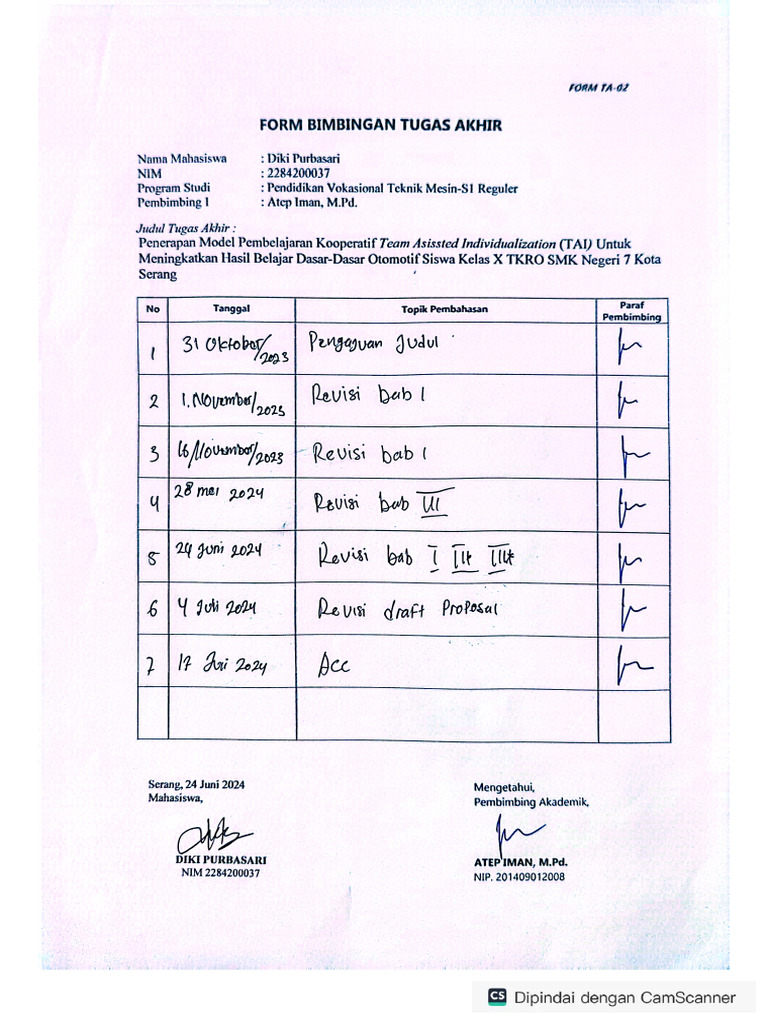 FORM TA-02
FORM BIMBINGAN TUGAS AKHIR
Nama Mahasiswa : Diki Purbasari
NIM : 2284200037
Program Studi : Pendidikan Vokasional Teknik Mesin-S1 Reguler
Pembimbing I : Atep Iman, M.Pd.
Judul Tugas Akhir :
Penerapan Model Pembelajaran Kooperatif Team Asissted Individualization (TAI) Untuk
Meningkatkan Hasil Belajar Dasar-Dasar Otomotif Siswa Kelas X TKRO SMK Negeri 7 Kota
Serang
No Tanggal Topik Pembahasan Paraf Pembimbing
1 31 Oktober/2023 Pengajuan Judul
2 1. November/2023 Revisi bab 1
3 16/November/2023 Revisi bab 1
4 28 mei 2024 Revisi bab III
5 24 Juni 2024 Revisi bab I II III
6 4 Juli 2024 Revisi draft Proposal
7 17 2024 Acc
Serang, 24 Juni 2024
Mahasiswa,
DIKI PURBASARI
NIM 2284200037
Mengetahui,
Pembimbing Akademik,
ATEP IMAN, M.Pd.
NIP. 201409012008
CS Dipindai dengan CamScanner